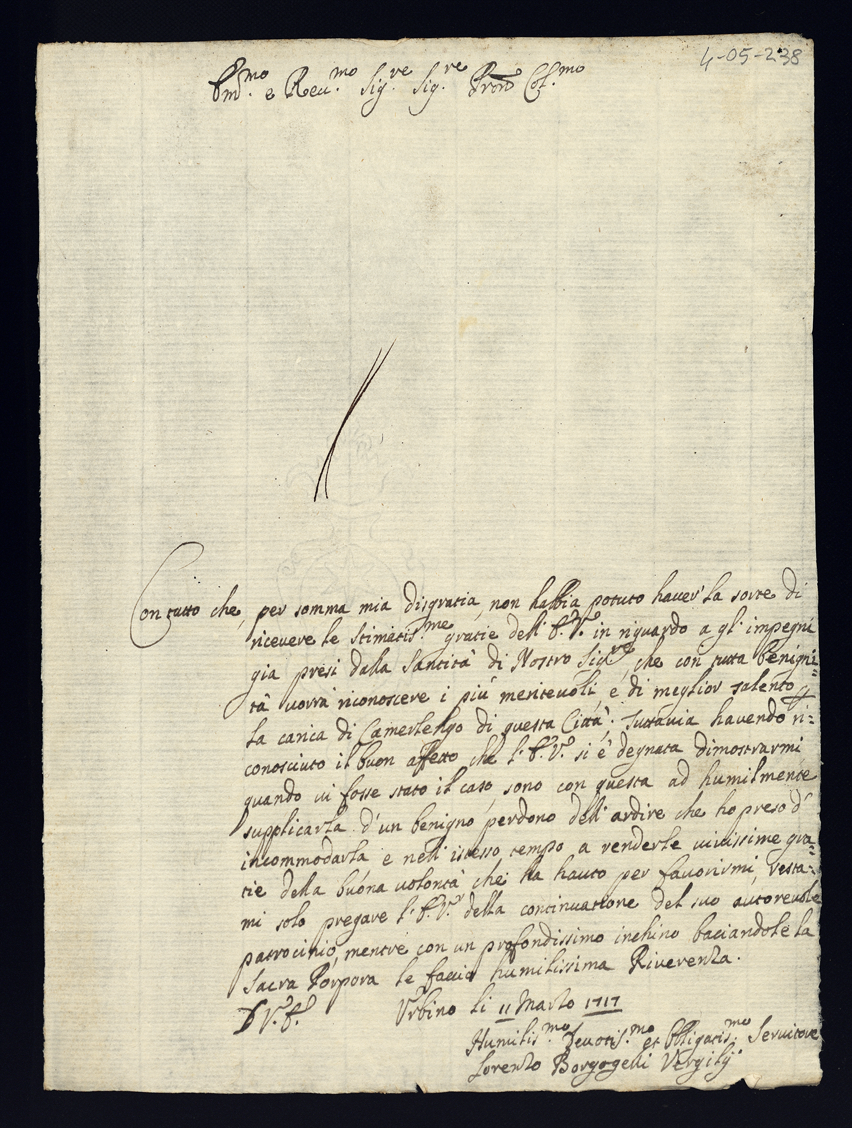 4-05-238
Em.mo e Reu.mo Sig.re Sig.re Pron Col.mo
Con tutto che, per somma mia disgratia, non habbia potuto hauer' la sorte di
riceuere le stimatis.me gratie dell' E.V. in riguardo a gl' impegni
gia presi dalla Santità di Nostro Sig.re, che con tutta benigni=
tà vorrà riconoscere i più meriteuoli, e di meglior talento
la carica di Camerlengo di questa Città. Tuttauia hauendo ri=
conosciuto il buon affetto che l' E.V. si è degnata dimostrarmi
quando ui fosse stato il caso, sono con questa ad humilmente
supplicarla d'un benigno perdono dell' ardire che ho preso d'
incommodarla e nell' istesso tempo a renderle uiuissime gra=
tie della buona uolontà che ha hauto per fauorirmi, resta=
mi solo pregare l' E.V. della continuatione del suo autoreuole
patrocinio, mentre con un profondissimo inchino baciandole la
Sacra Porpora le faccio humilissima Riuerenza.
D V.E. Vrbino li 11 Marzo 1717
Humilis.mo Deuotis.mo et Obligatis.mo Seruitore
Lorenzo Borgogelli Vergilij